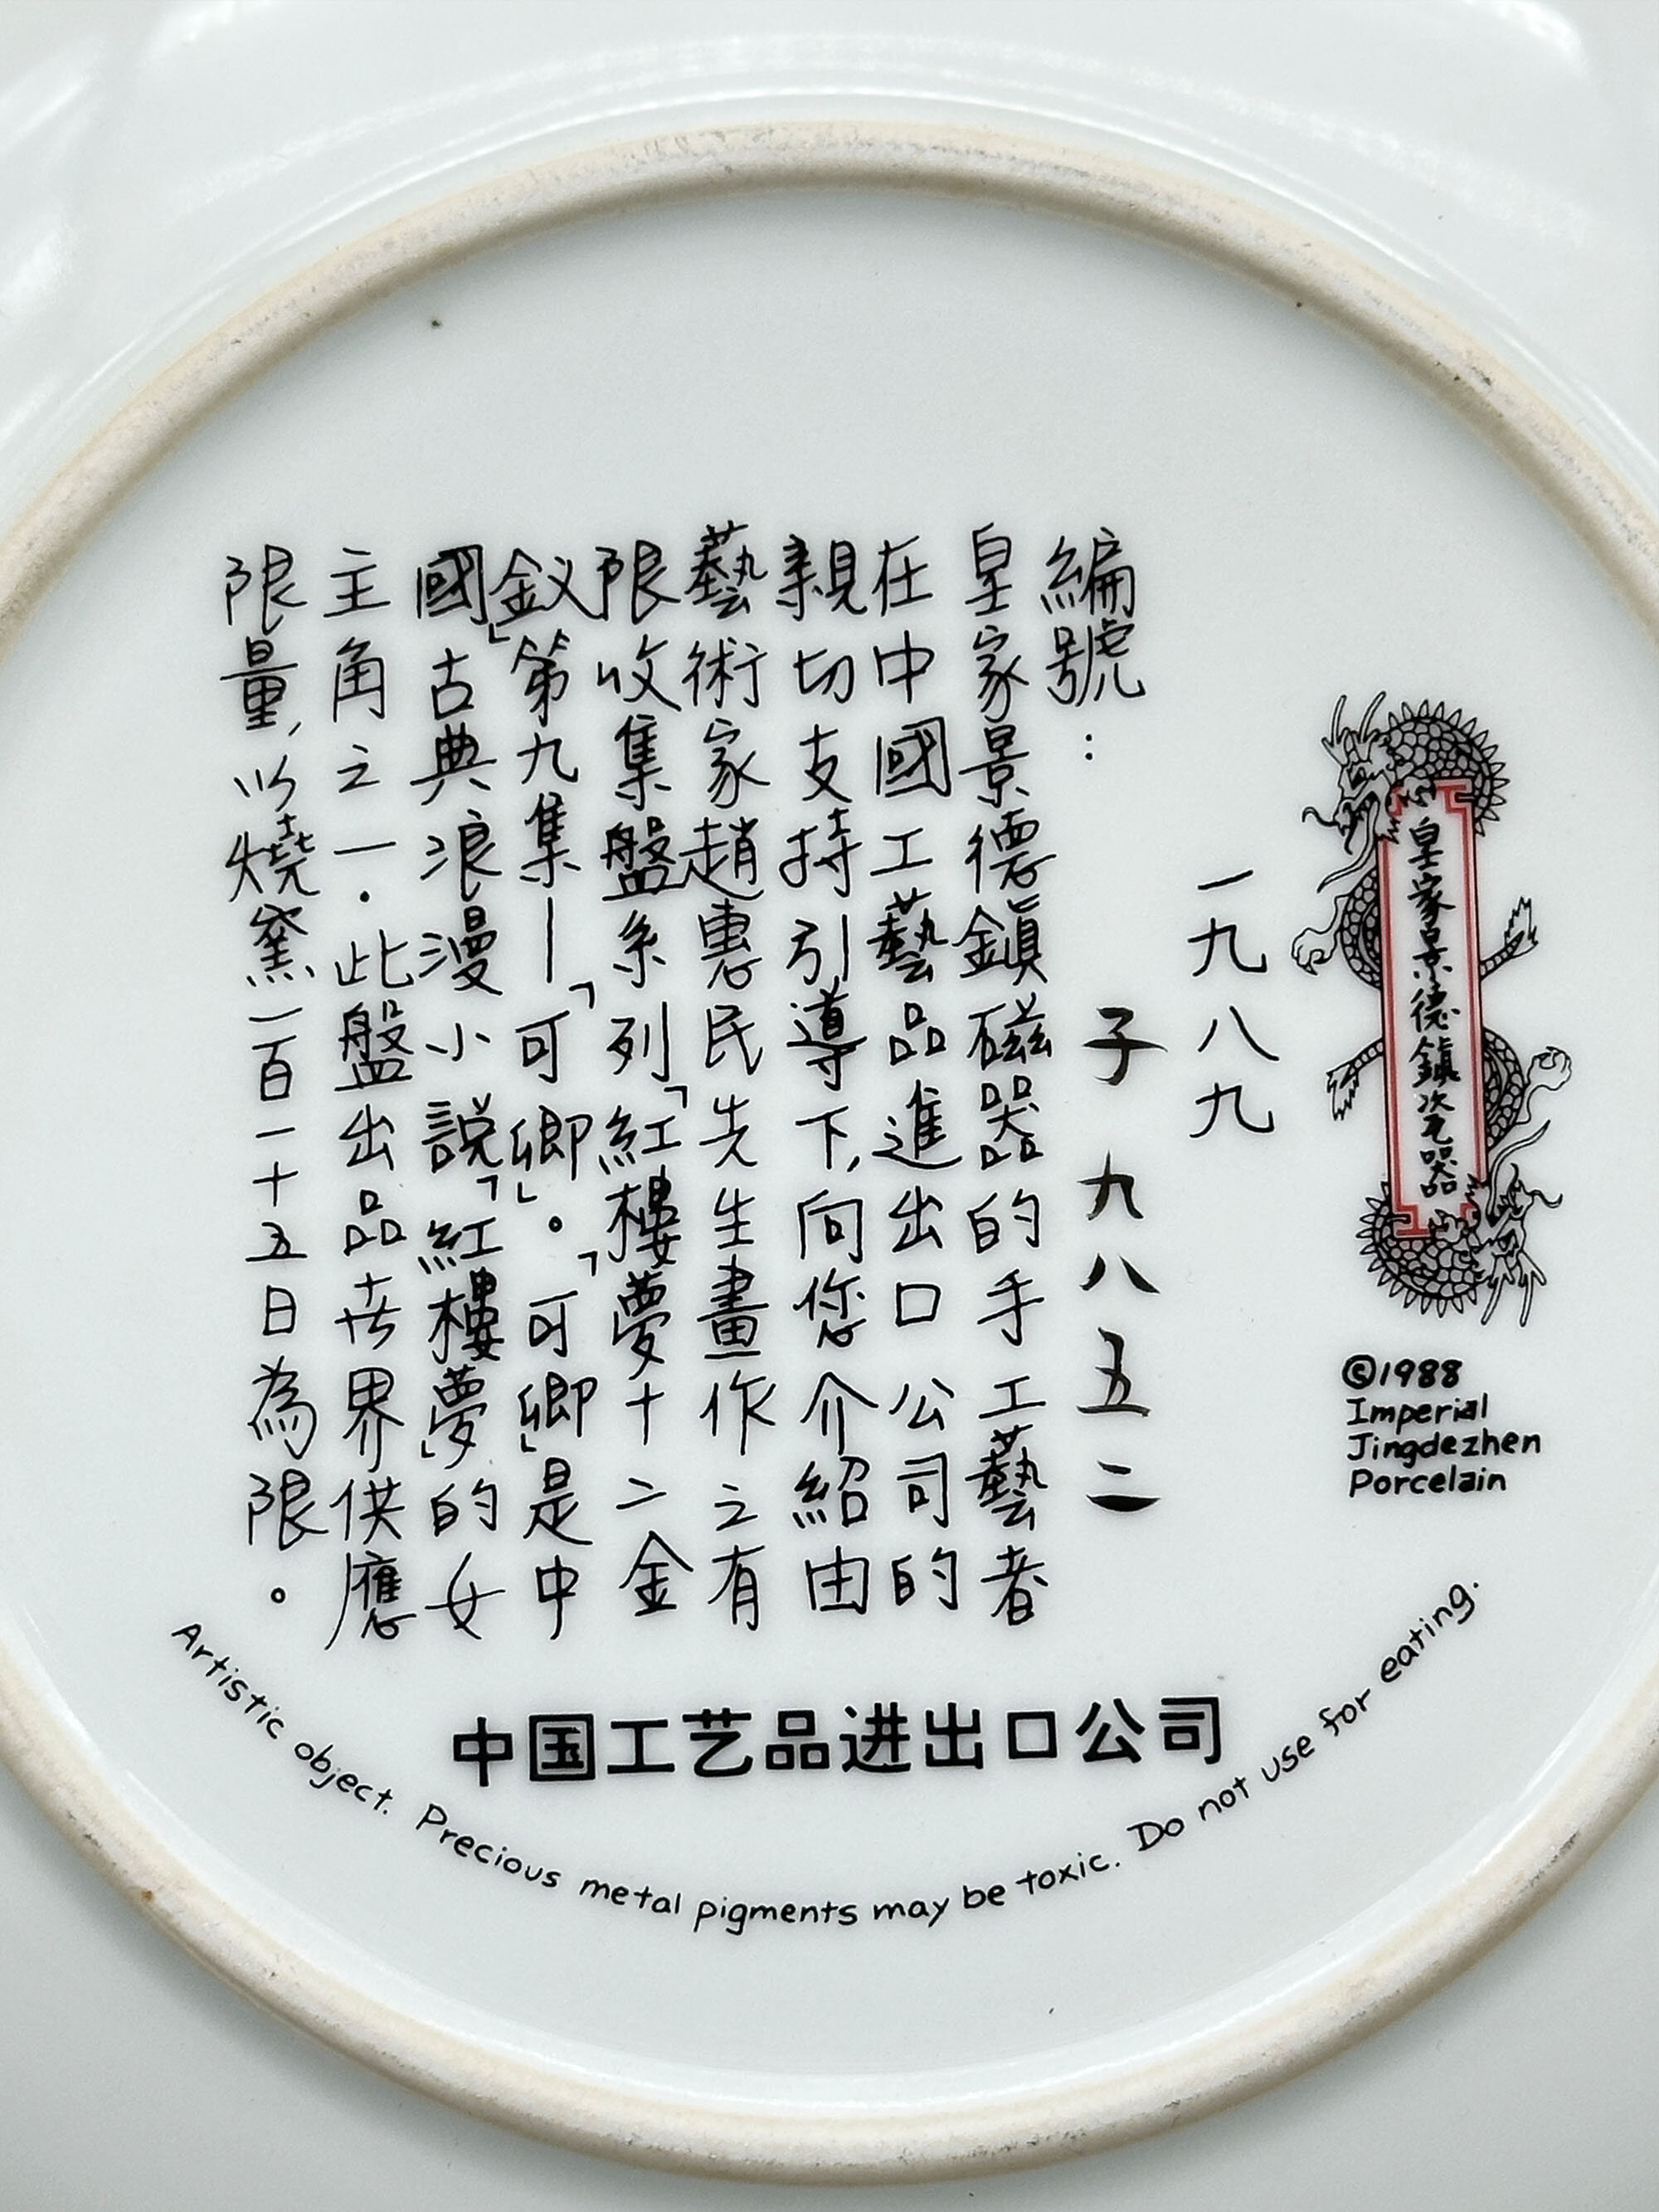 皇家景德鎮瓷器
©1988
Imperial
Jingdezhen
Porcelain
一九八九
編號： 子九八五二
皇家景德鎮磁器的手工藝者
在中國工藝品進出口公司的
親切支持引導下，向您介紹由
藝術家趙惠民先生畫作之有
限收集盤系列「紅樓夢十二金
釵」第九集—「可卿」。「可卿」是中
國古典浪漫小說「紅樓夢」的女
主角之一．此盤出品世界供應
限量，以燒窯一百一十五日為限。
中国工艺品进出口公司
Artistic object. Precious metal pigments may be toxic. Do not use for eating.